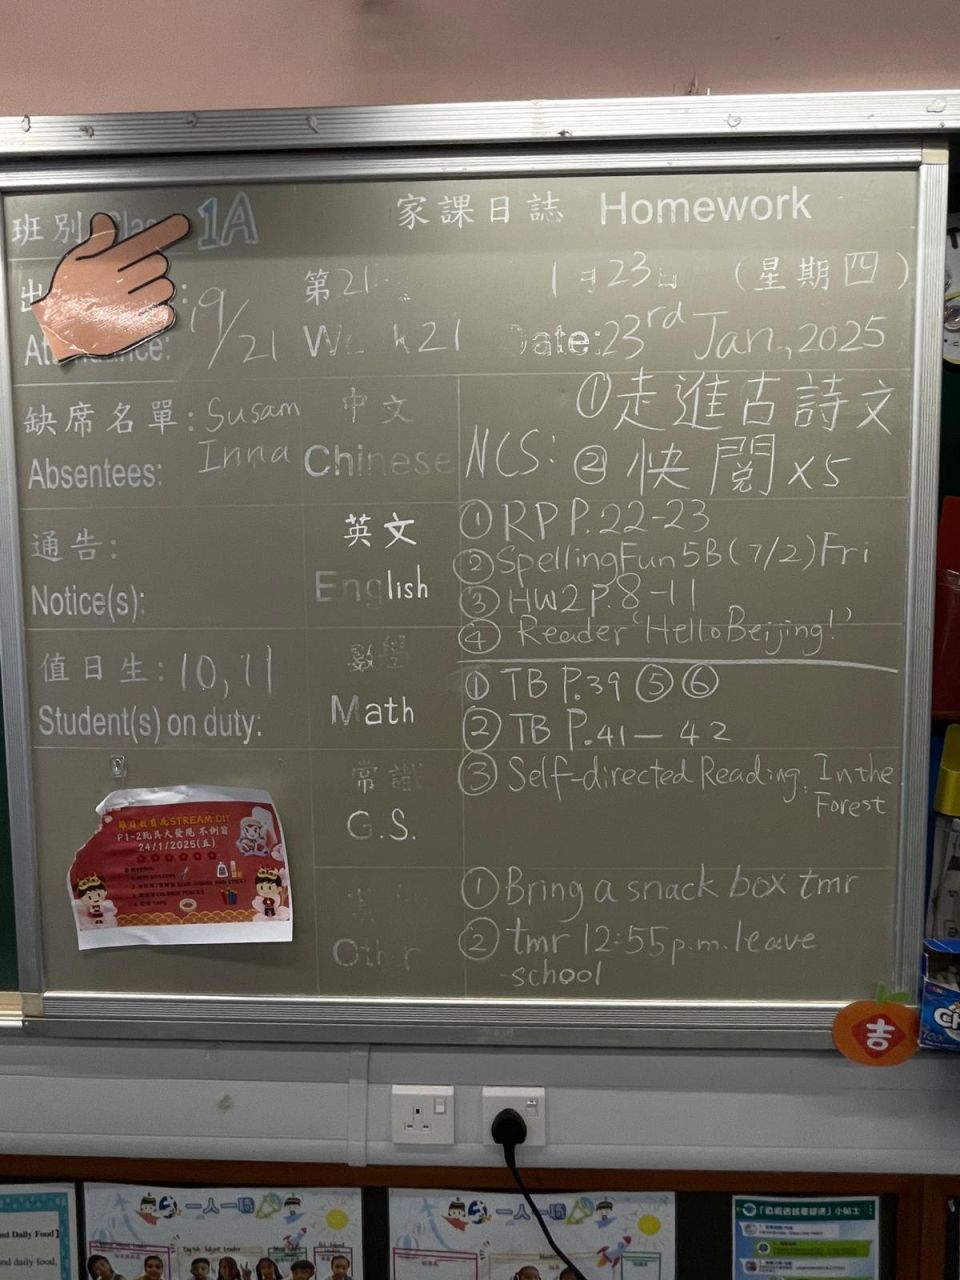 班別 1A
家課日誌 Homework
19/21
第21
1月23日 (星期四)
Week21
Date:23rd Jan.,2025
缺席名單: Susam
Absentees: Inna
中文
Chinese
①走進古詩文
NCS: ②快閱x5
通告:
Notice(s):
英文
English
①RP P.22-23
②Spelling Fun 5B (7/2) Fri
③HW2 P.8-11
④Reader 'Hello Beijing!'
值日生: 10,11
Student(s) on duty:
數學
Math
①TB P.39 ⑤⑥
②TB P.41-42
常識
G.S.
③Self-directed Reading: In the
Forest
Other
①Bring a snack box tmr
②tmr 12:55p.m. leave
school
STREAM DIY
P1-2玩具大發現 不倒翁
24/1/2025(五)
吉
一人一職
一人一職